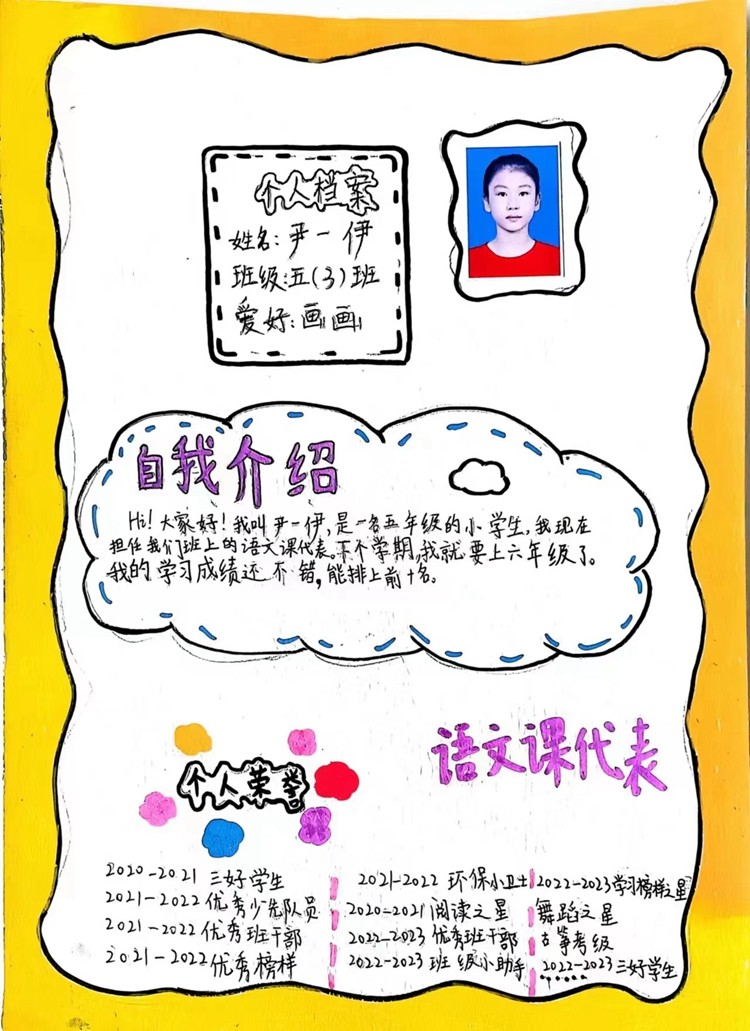 个人档案
姓名：尹一伊
班级：五(3)班
爱好：画画
自我介绍
Hi！大家好！我叫尹一伊，是一名五年级的小学生，我现在
担任我们班上的语文课代表。下个学期，我就要上六年级了。
我的学习成绩还不错，能排上前十名。
语文课代表
个人荣誉
2020-2021 三好学生
2021-2022 优秀少先队员
2021-2022 优秀班干部
2021-2022 优秀榜样
2021-2022 环保小卫士
2020-2021 阅读之星
2022-2023 优秀班干部
2022-2023 班级小助手
2022-2023 学习榜样之星
舞蹈之星
古筝考级
2022-2023 三好学生
......